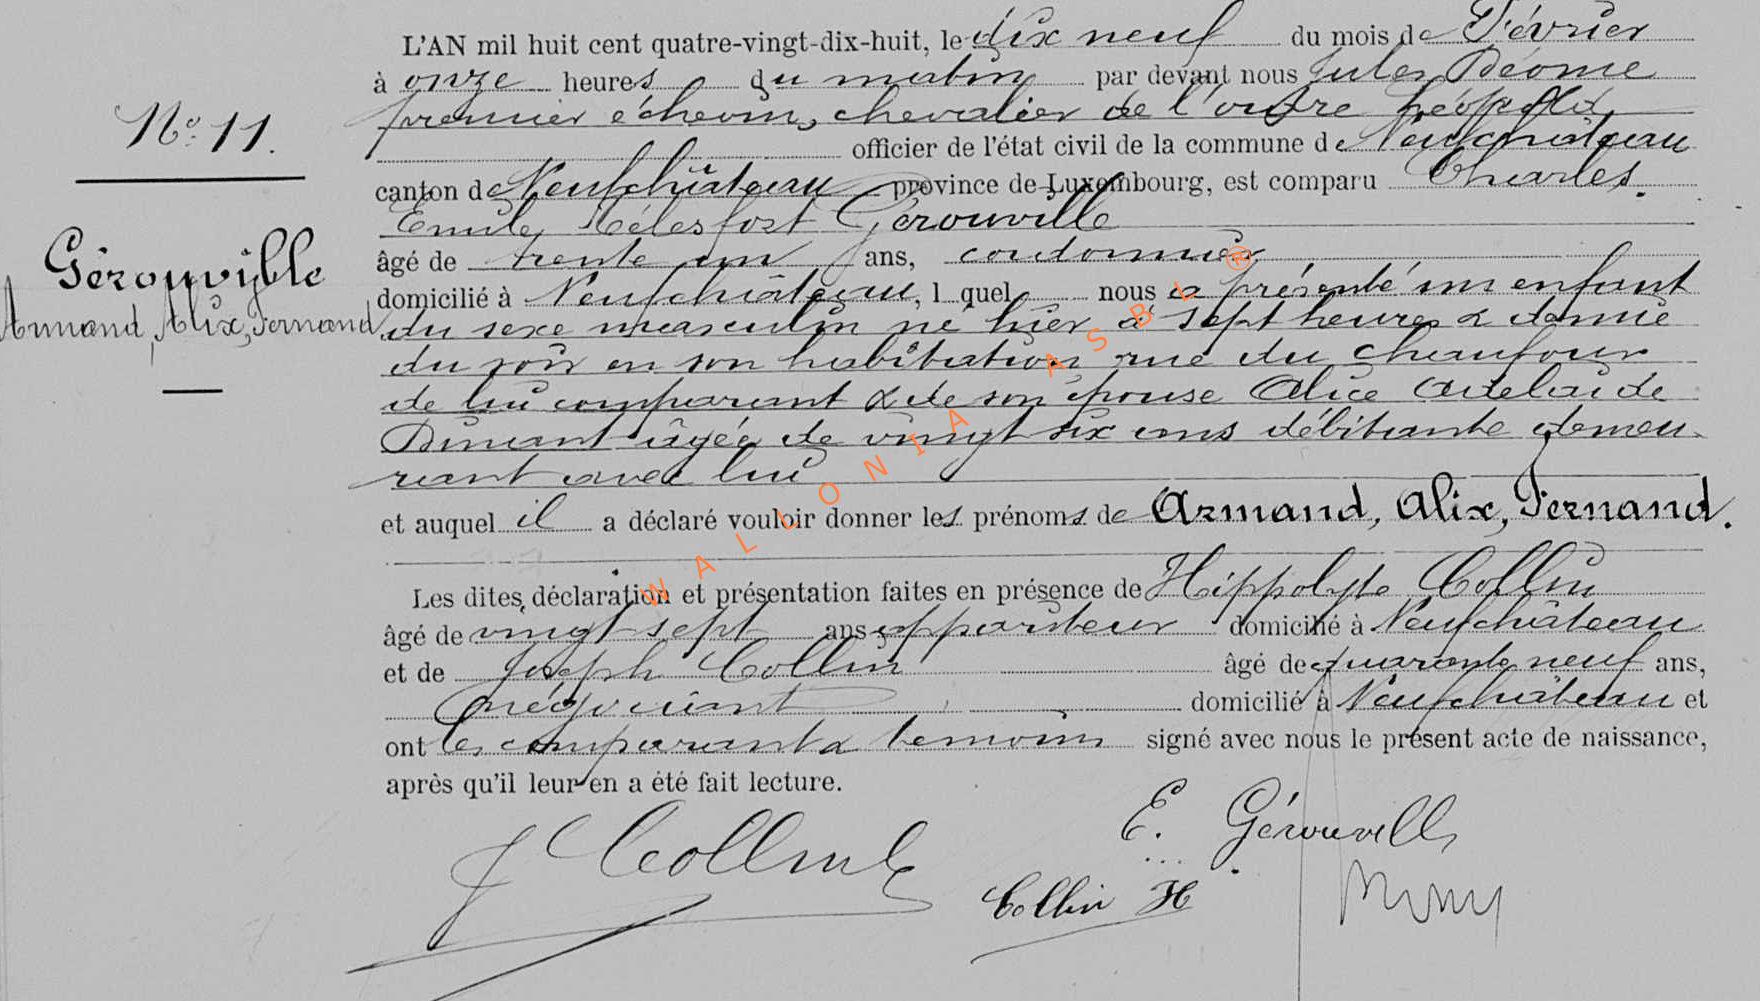 L'AN mil huit cent quatre-vingt-dix-huit, le dix neuf du mois de Février
à onze heures du matin par devant nous Jules Déome
premier échevin, chevalier de l'ordre Léopold,
officier de l'état civil de la commune de Neufchâteau
canton de Neufchâteau province de Luxembourg, est comparu Charles.
Emile Gérouville
âgé de trente un ans, cordonnier
domicilié à Neufchâteau, lequel nous a présenté un enfant
du sexe masculin né hier à sept heures & demie
du soir en son habitation rue du Chaufour
de lui comparant & de son épouse Alice Adelaide
âgée de vingt six ans débitante demeu-
rant avec lui
et auquel il a déclaré vouloir donner les prénoms de Armand, Alix, Fernand.
Les dites déclaration et présentation faites en présence de Hippolyte Collin
âgé de vingt sept ans appariteur domicilié à Neufchâteau
et de Joseph Collin âgé de quarante neuf ans,
négociant domicilié à Neufchâteau et
ont les comparant & témoins signé avec nous le présent acte de naissance,
après qu'il leur en a été fait lecture.
No 11.
Gérouville
Armand, Alix, Fernand
J Collin
E. Gérouville
Collin H
WALLONIA ASBL ®